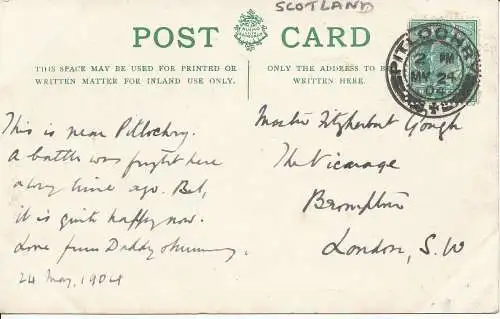 SCOTLAND
POST CARD
THIS SPACE MAY BE USED FOR PRINTED OR
WRITTEN MATTER FOR INLAND USE ONLY.
THE ADDRESS TO BE
WRITTEN HERE.
PITLOCHRY
2 PM
MY 24
04
This is near Pitlochry.
A battle was fought here
a long time ago. But,
it is quite happy now.
Love from Daddy & mummy.
24 May, 1904
Master Fitzherbert Gough
The Vicarage
Brompton
London, S.W